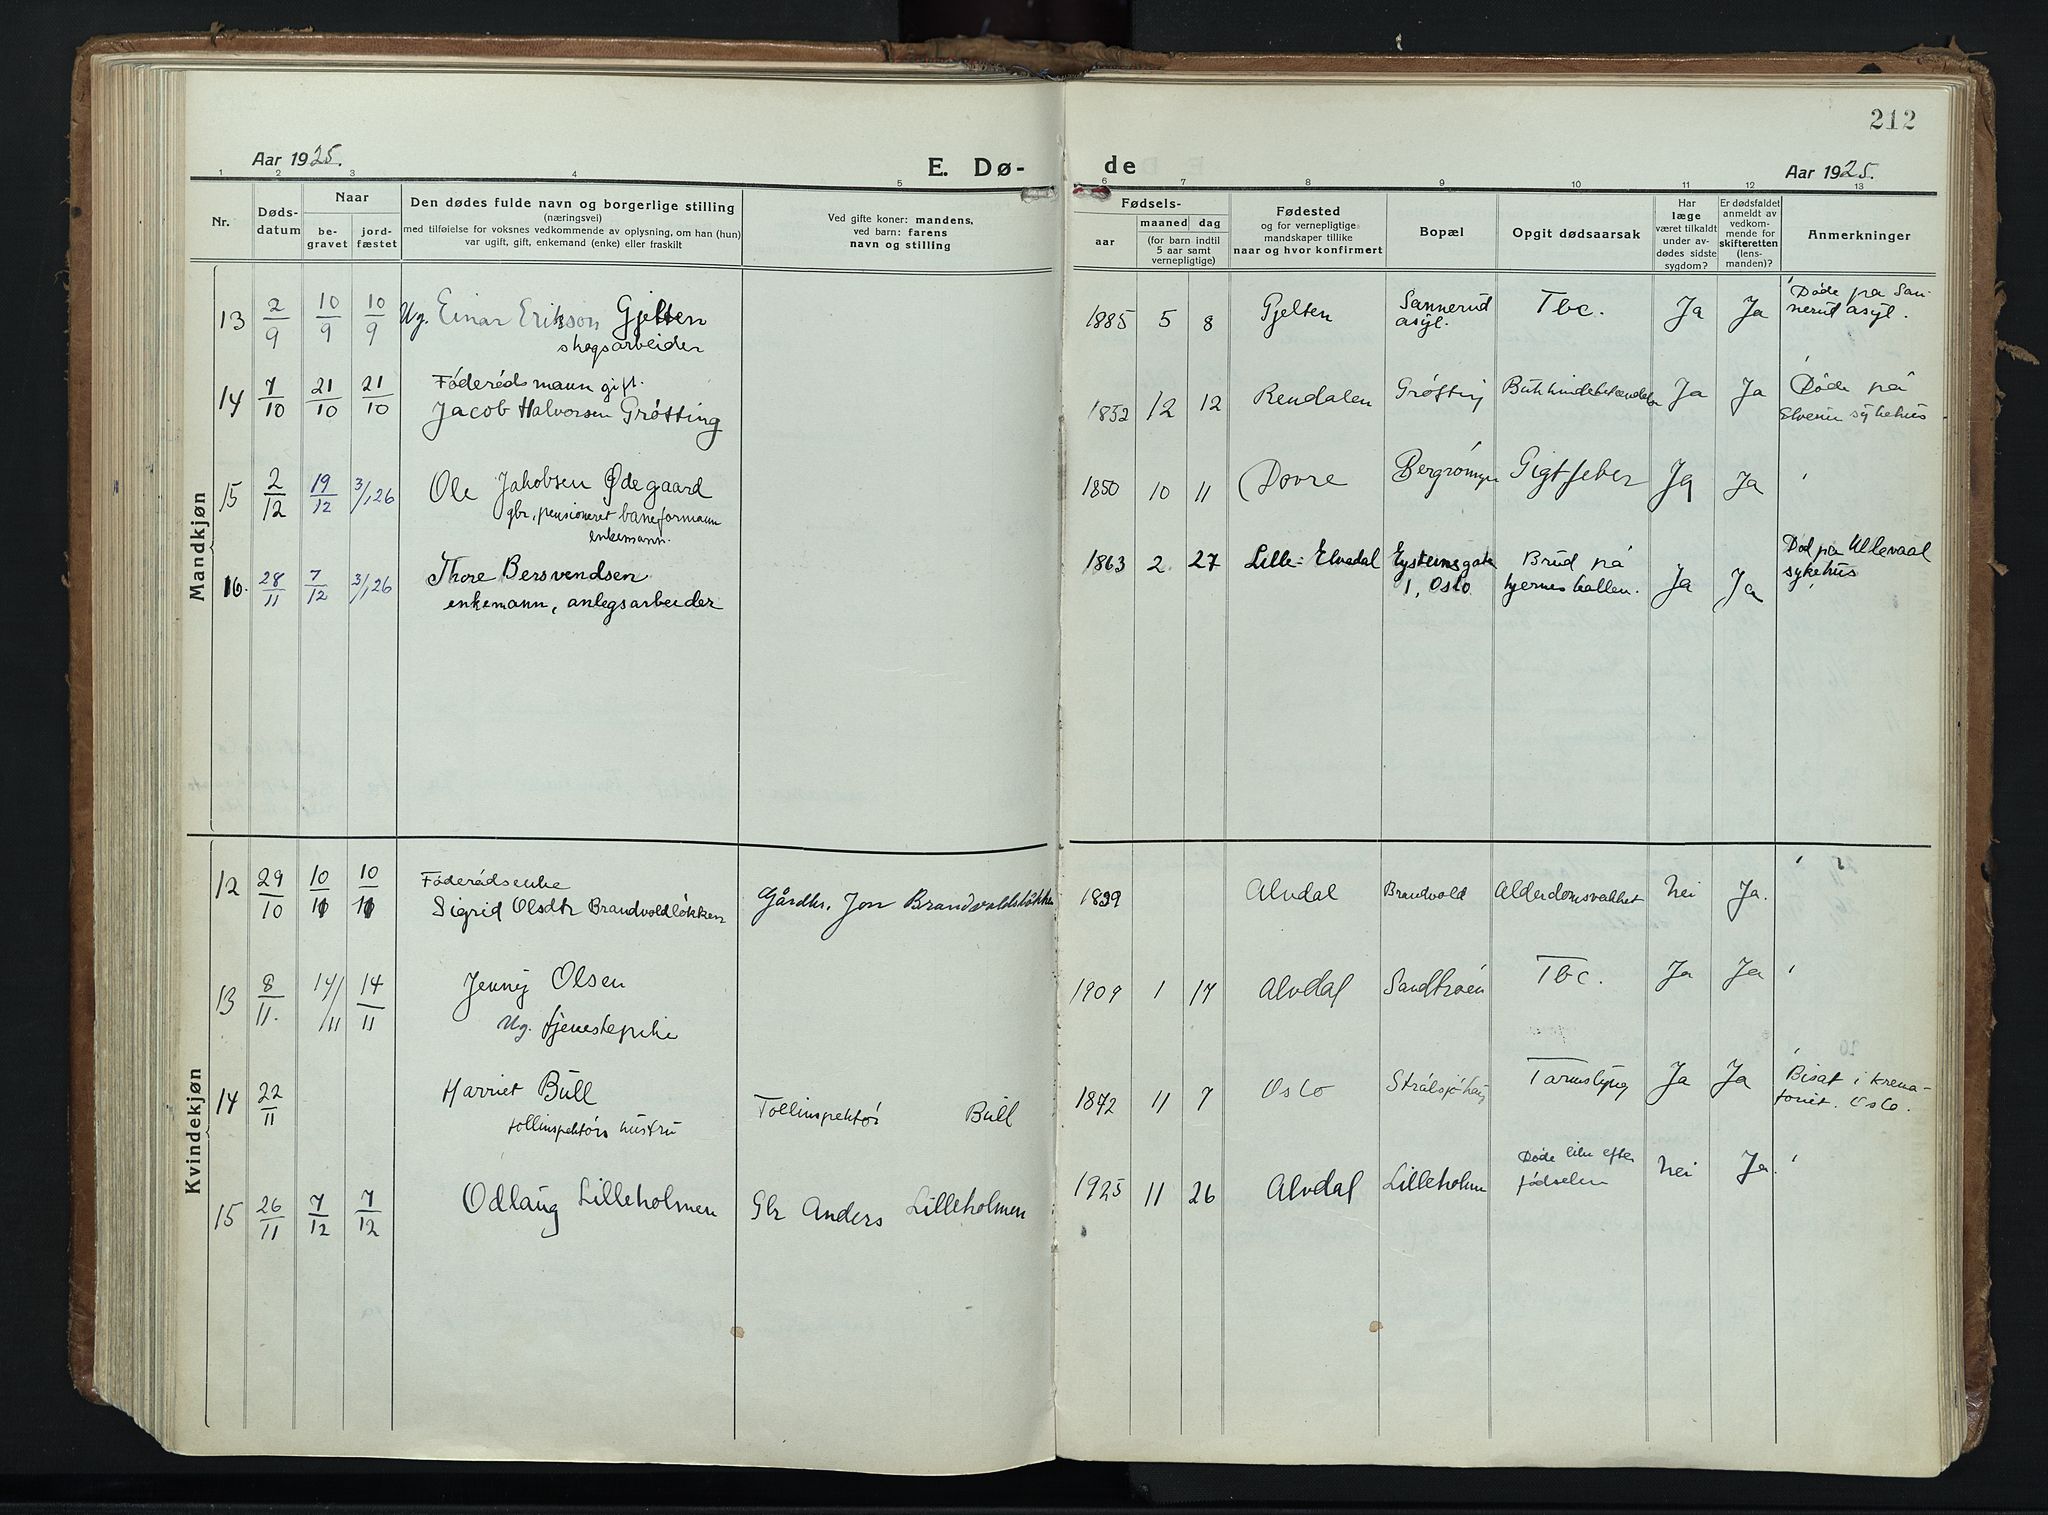 212
Aar 1925.
E. Dø-
de
Aar 1925.
1 2 3 4 5 6 7 8 9 10 11 12 13
Nr.
Døds-
datum
Naar
be-
gravet
jord-
fæstet
Den dødes fulde navn og borgerlige stilling
(næringsvei)
med tilføielse for voksnes vedkommende av oplysning, om han (hun)
var ugift, gift, enkemand (enke) eller fraskilt
Ved gifte koner: mandens,
ved barn: farens
navn og stilling
Fødsels-
aar
maaned
dag
(for barn indtil
5 aar samt
vernepligtige)
Fødested
og for vernepligtige
mandskaper tillike
naar og hvor konfirmert
Bopæl
Opgit dødsaarsak
Har
læge
været tilkaldt
under av-
dødes sidste
sygdom?
Er dødsfaldet
anmeldt av
vedkom-
mende for
skifteretten
(lens-
manden)?
Anmerkninger
Mandkjøn
13 2/9 10/9 10/9 Ug. Einar Erikson Gjelten
skogsarbeider
1885 5 8 Gjelten Sannerud
asyl. Tbc. Ja Ja Døde på San-
nerud asyl.
14 7/10 21/10 21/10 Föderådsmann gift.
Jacob Halvorsen Grøtting
1852 12 12 Rendalen Grøtting Bukhindebetændelse Ja Ja Døde på
Elverum sykehus
15 2/12 19/12 3/1 26 Ole Jakobsen Ødegaard
gbr, pensioneret baneformann
enkemann.
1850 10 11 Dovre Gigtfeber Ja Ja
16. 28/11 7/12 3/1 26 Thore Bersvendsen
enkemann, anlegsarbeider
1863 2 27 Lille-Elvedal Eysteinsgate
1, Oslo. Brud på
hjerneskallen. Ja Ja Død på Ullevaal
sykehus
Kvindekjøn
12 29/10 10/11 10/11 Föderådsenke
Sigrid Olsdtr Brandvoldløkken Gårdbr. Jon Brandvoldsløkken
1839 Alvdal Brandvold Alderdomsvakhet Nei Ja.
13 8/11. 14/11 14/11 Jenny Olsen
Ug. tjenestepike
1909 1 17 Alvdal Sandtrøen Tbc. Ja Ja
14 22/11 Harriet Bull
tollinspektørs hustru Tollinspektør Bull
1872 11 7 Oslo Strålsjøhaug Tarmslyng Ja Ja Bisat i Krema-
toriet. Oslo.
15 26/11 7/12 7/12 Odlaug Lilleholmen Gbr Anders Lilleholmen
1925 11 26 Alvdal Lilleholm Døde like efter
fødselen Nei Ja.